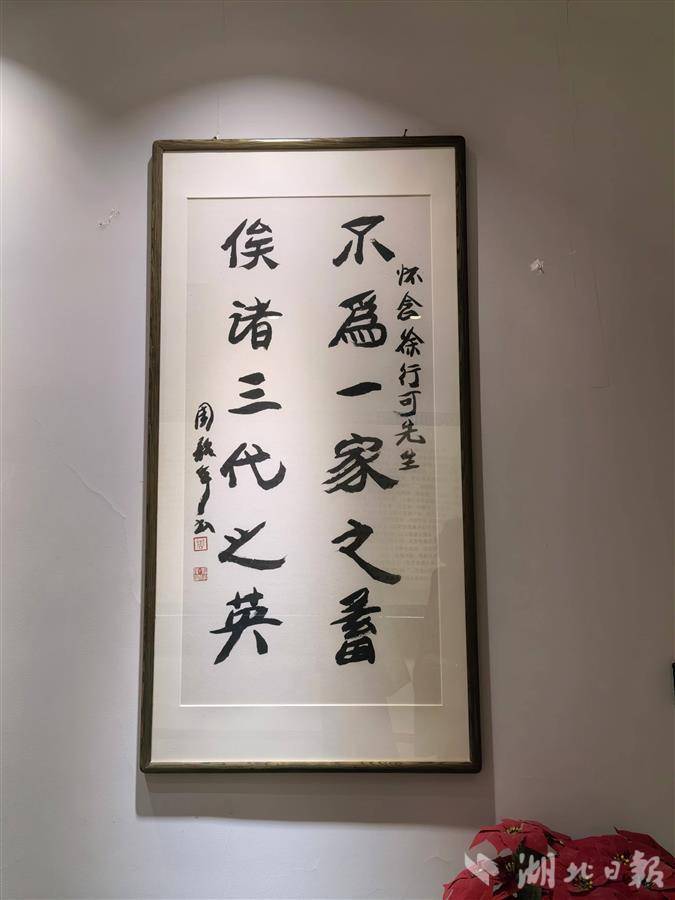 怀念徐行可先生
不爲一家之蓄
俟诸三代之英
周韶华书
湖北日報